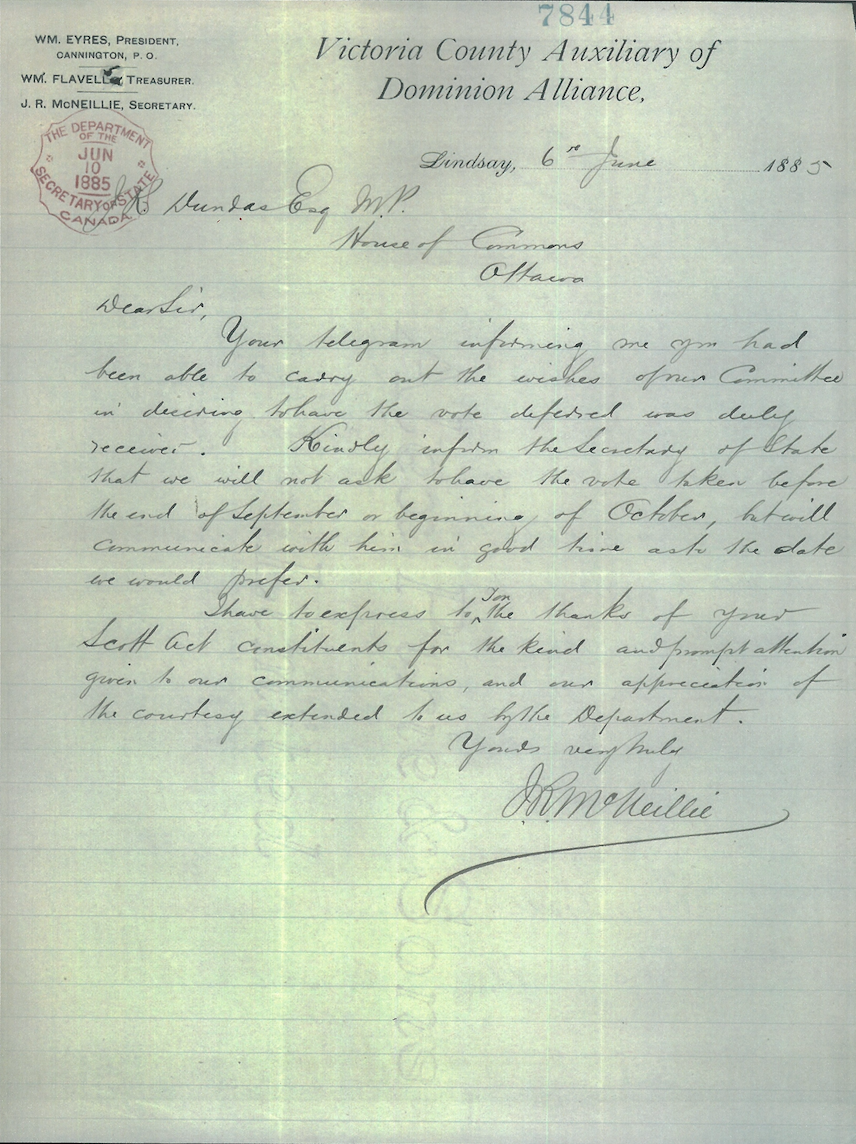 7844
WM. EYRES, PRESIDENT,
CANNINGTON, P. O.
WM. FLAVELLE TREASURER.
J. R. MCNEILLIE, SECRETARY.
Victoria County Auxiliary of
Dominion Alliance,
THE DEPARTMENT
OF THE
JUN
10
1885
SECRETARY OF STATE
CANADA
Lindsay, 6th June 1885
Dundas Esq M.P.
House of Commons
Ottawa
Dear Sir,
Your telegram informing me you had
been able to carry out the wishes of our Committee
in desiring to have the vote deferred was duly
received. Kindly inform the Secretary of State
that we will not ask to have the vote taken before
the end of September or beginning of October, but will
communicate with him in good time as to the date
we would prefer.
I have to express to you the thanks of your
Scott Act constituents for the kind and prompt attention
given to our communications, and our appreciation of
the courtesy extended to us by the Department.
Yours very truly
J.R. McNeillie